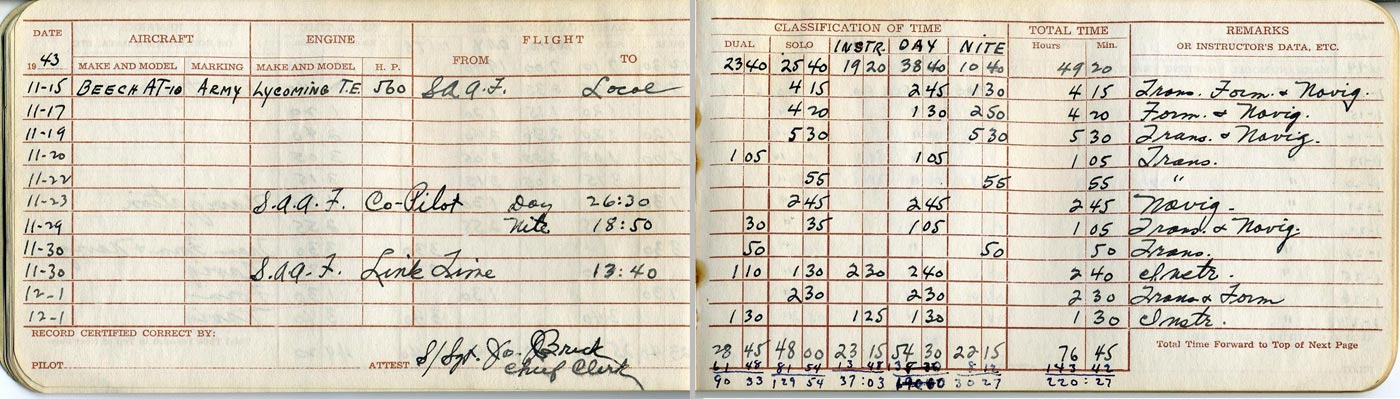 DATE AIRCRAFT ENGINE FLIGHT CLASSIFICATION OF TIME TOTAL TIME REMARKS
DUAL SOLO INSTR. DAY NITE Hours Min. OR INSTRUCTOR'S DATA, ETC.
1943 MAKE AND MODEL MARKING MAKE AND MODEL H. P. FROM TO 23 40 25 40 19 20 38 40 10 40 49 20
11-15 BEECH AT-10 ARMY LYCOMING T.E. 560 S.A.A.F. Local 4 15 2 45 1 30 4 15 Trans. Form. & Navig.
11-17 4 20 1 30 2 50 4 20 Form. & Navig.
11-19 5 30 5 30 5 30 Trans. & Navig.
11-20 1 05 1 05 1 05 Trans.
11-22 55 55 55 "
11-23 S.A.A.F. Co-Pilot Day 26:30 2 45 2 45 2 45 Navig.
11-29 Nite 18:50 30 35 1 05 1 05 Trans. & Navig.
11-30 50 50 50 Trans.
11-30 S.A.A.F. Link Time 13:40 1 10 1 30 2 30 2 40 2 40 Instr.
12-1 2 30 2 30 2 30 Trans & Form
12-1 1 30 1 25 1 30 1 30 Instr.
RECORD CERTIFIED CORRECT BY: Total Time Forward to Top of Next Page
PILOT ATTEST S/Sgt. Jo. Brick 28 45 48 00 23 15 54 30 22 15 76 45
Chief Clerk 61 48 81 54 13 48 8 12 143 42
90 33 129 54 37:03 30 27 220:27